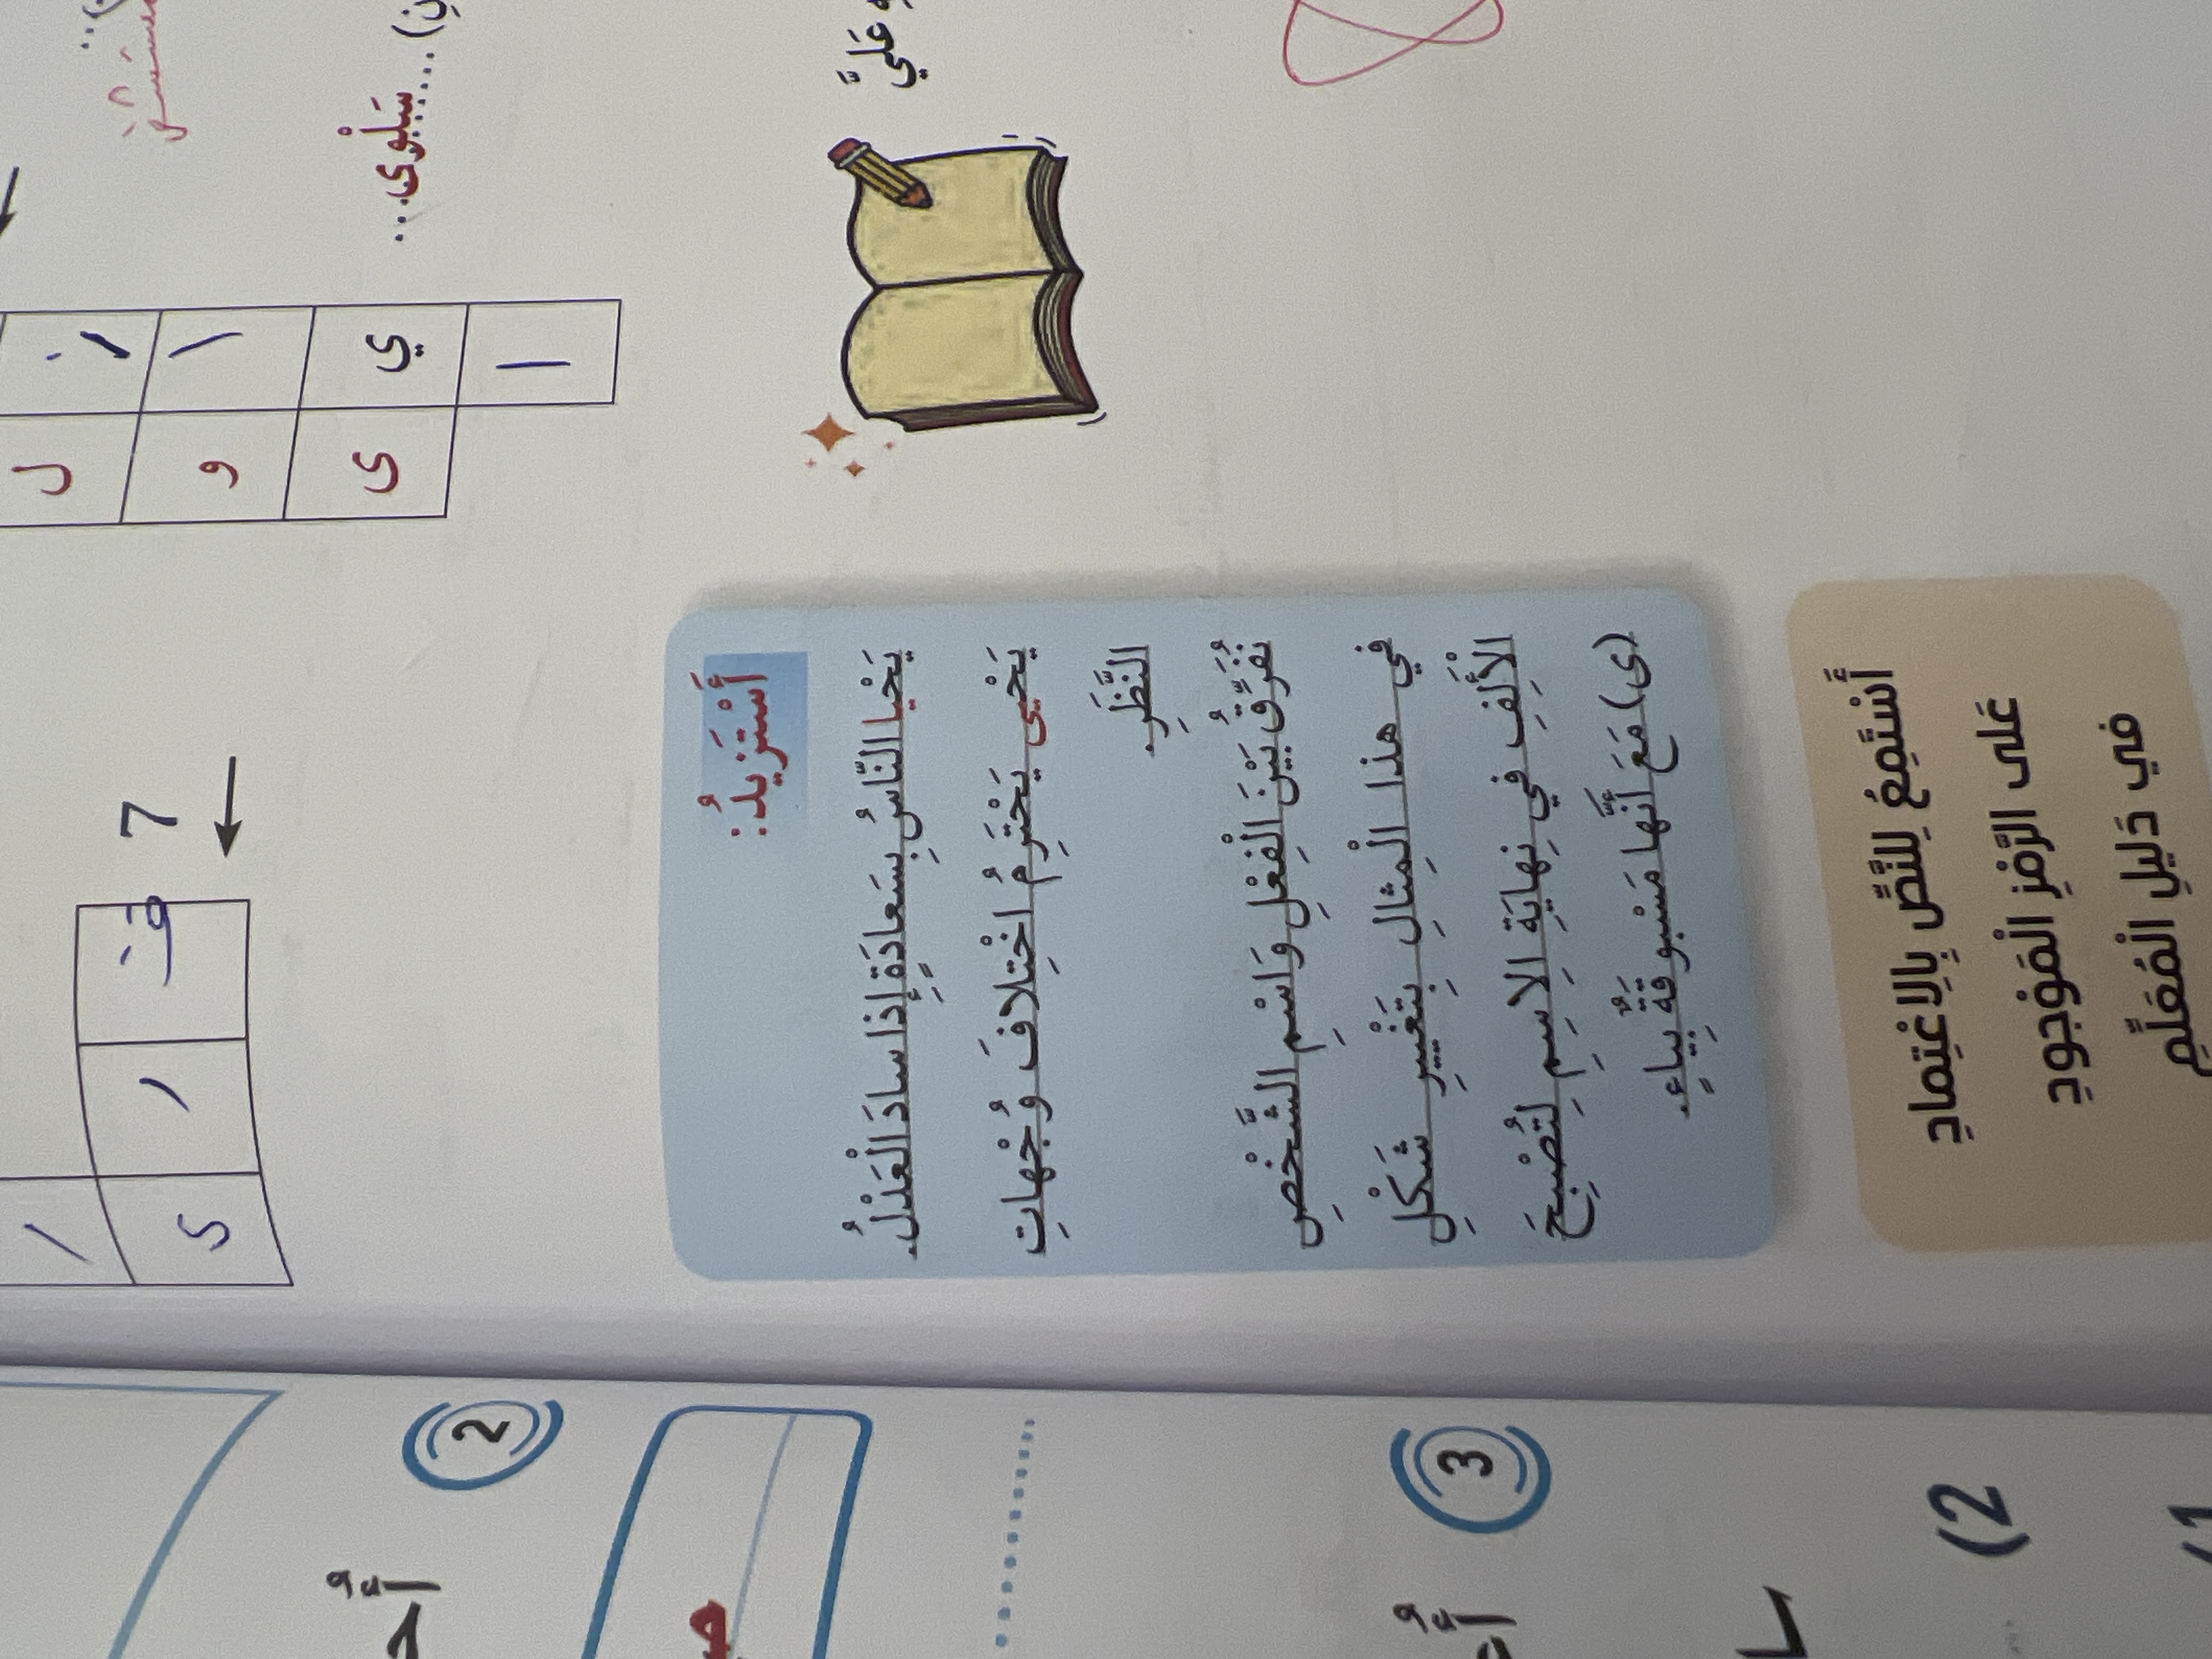 سَبَلْوى
ل
و
ا
ى
ي
ا
ق
ر
ى
7
عَلَيَّ
أَسْتَزيدُ:
يَحْيا النّاسُ بِسَعادَةٍ إِذا سادَ الْعَدْلُ.
يَحْيى يَحْتَرِمُ اخْتِلافَ وُجْهاتِ
النَّظَرِ.
نُفَرِّقُ بَيْنَ الْفِعْلِ وَاسْمِ الشَّخْصِ
في هذا الْمِثالِ بِتَغْييرِ شَكْلِ
الْأَلِفِ في نِهايَةِ الِاسِمِ لِتُصْبِحَ
(ى) مَعَ أَنَّها مَسْبوقَةٌ بِياءٍ.
أَسْتَمِعُ لِلنَّصِّ بِالِاعْتِمادِ
عَلى الرَّمْزِ الْمَوْجودِ
في دَليلِ الْمُعَلِّمِ
2
3
(2
(1